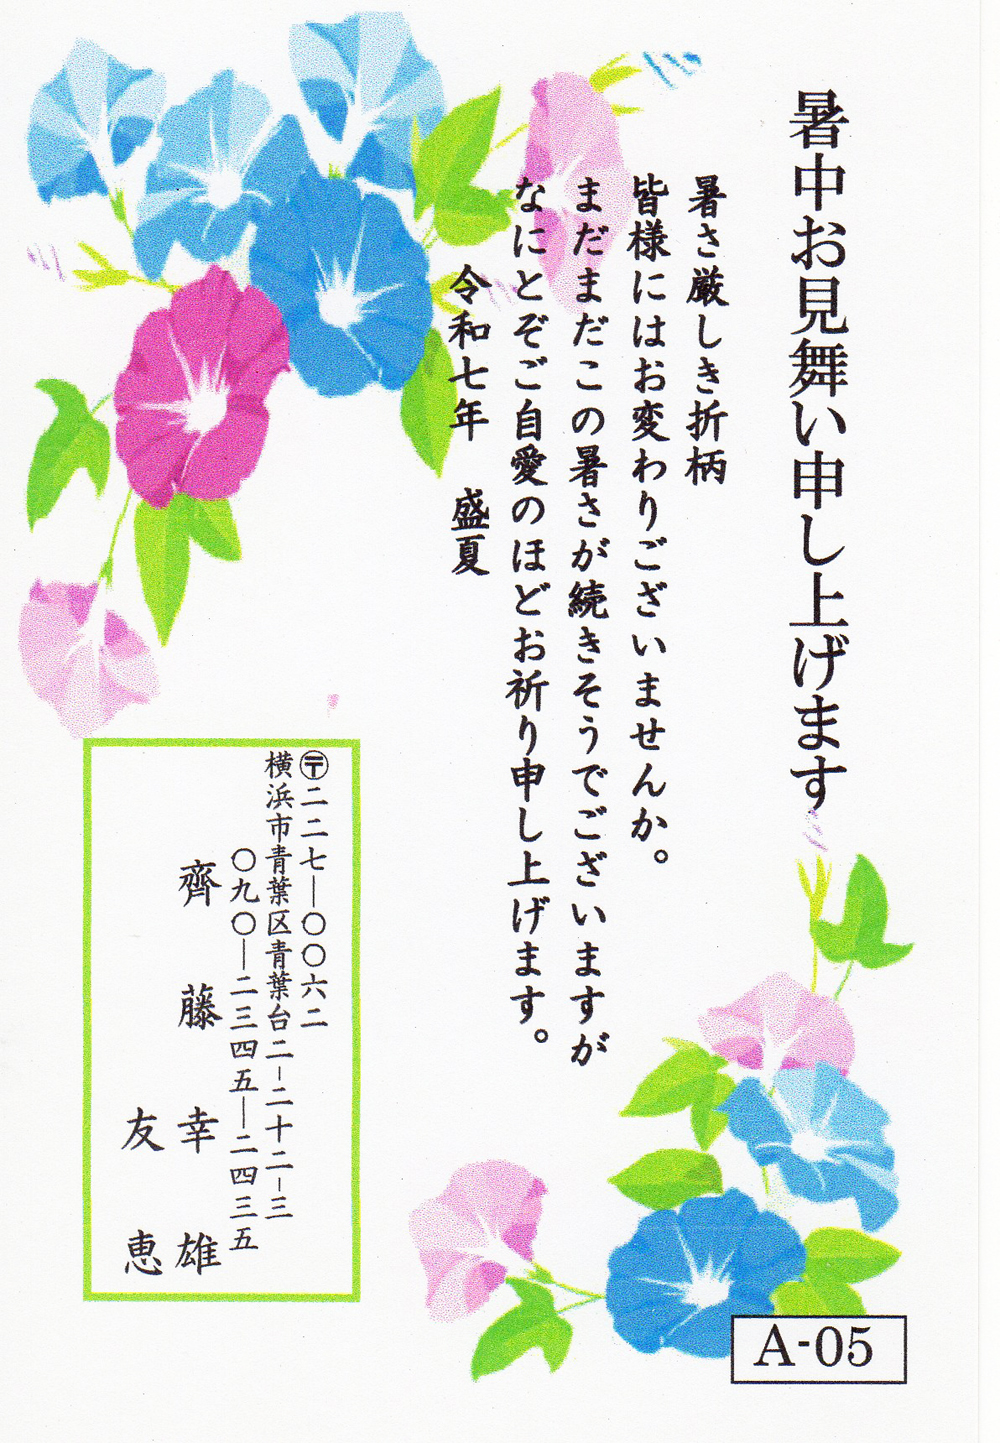 暑中お見舞い申し上げます
暑さ厳しき折柄
皆様にはお変わりございませんか。
まだまだこの暑さが続きそうでございますが
なにとぞご自愛のほどお祈り申し上げます。
令和七年　盛夏
〒二二七―〇〇六二
横浜市青葉区青葉台二－二十二－三
〇九〇―二三四五―二四三五
齊藤幸雄
友恵
A-05